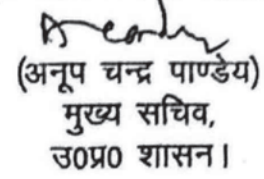 (अनूप चन्द्र पाण्डेय)
मुख्य सचिव,
उ0प्र0 शासन।